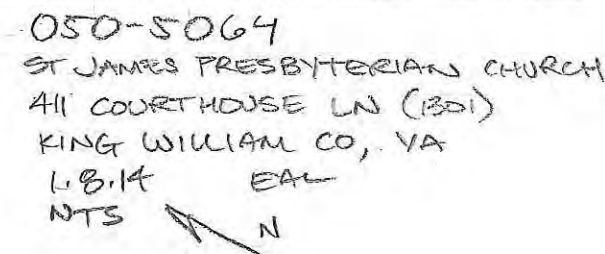 050-5064
ST JAMES PRESBYTERIAN CHURCH
411 COURTHOUSE LN (1301)
KING WILLIAM CO, VA
1.8.14 EAL
NTS N